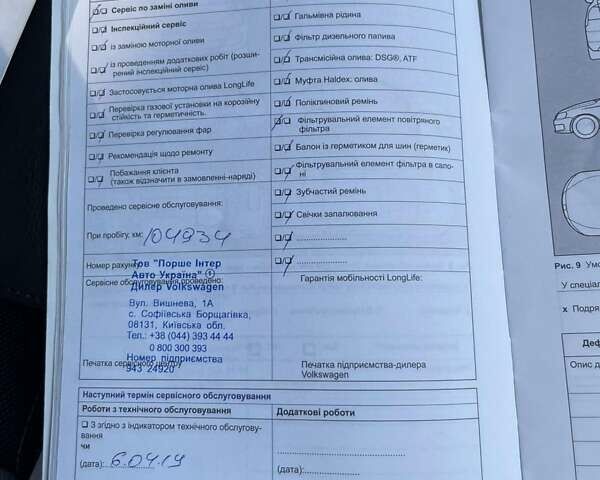 Сервіс по заміні оливи
Інспекційний сервіс
із заміною моторної оливи
із проведенням додаткових робіт (розши-
рений інспекційний сервіс)
Застосовується моторна олива LongLife
Перевірка газової установки на корозійну
стійкість та герметичність.
Перевірка регулювання фар
Рекомендація щодо ремонту
Побажання клієнта
(також відзначити в замовленні-наряді)
Проведено сервісне обслуговування:
При пробігу, км: 104934
Номер рахунку
Сервісне обслуговування проведено:
Тов "Порше Інтер
Авто Україна"
Дилер Volkswagen
Вул. Вишнева, 1А
с. Софіївська Борщагівка,
08131, Київська обл.
Тел.: +38 (044) 393 44 44
0 800 300 393
Номер підприємства
943 24920
Печатка сервісного центру
Гальмівна рідина
Фільтр дизельного палива
Трансмісійна олива: DSG®, ATF
Муфта Haldex: олива
Полікліновий ремінь
Фільтрувальний елемент повітряного
фільтра
Балон із герметиком для шин (герметик)
Фільтрувальний елемент фільтра в сало-
ні
Зубчастий ремінь
Свічки запалювання
Гарантія мобільності LongLife:
Печатка підприємства-дилера
Volkswagen
Наступний термін сервісного обслуговування
Роботи з технічного обслуговування
Додаткові роботи
З згідно з індикатором технічного обслугову-
вання
чи
(дата): 6.04.19
(дата):
Рис. 9 Умо
У спеціал
x Подря
Деф
Опис д